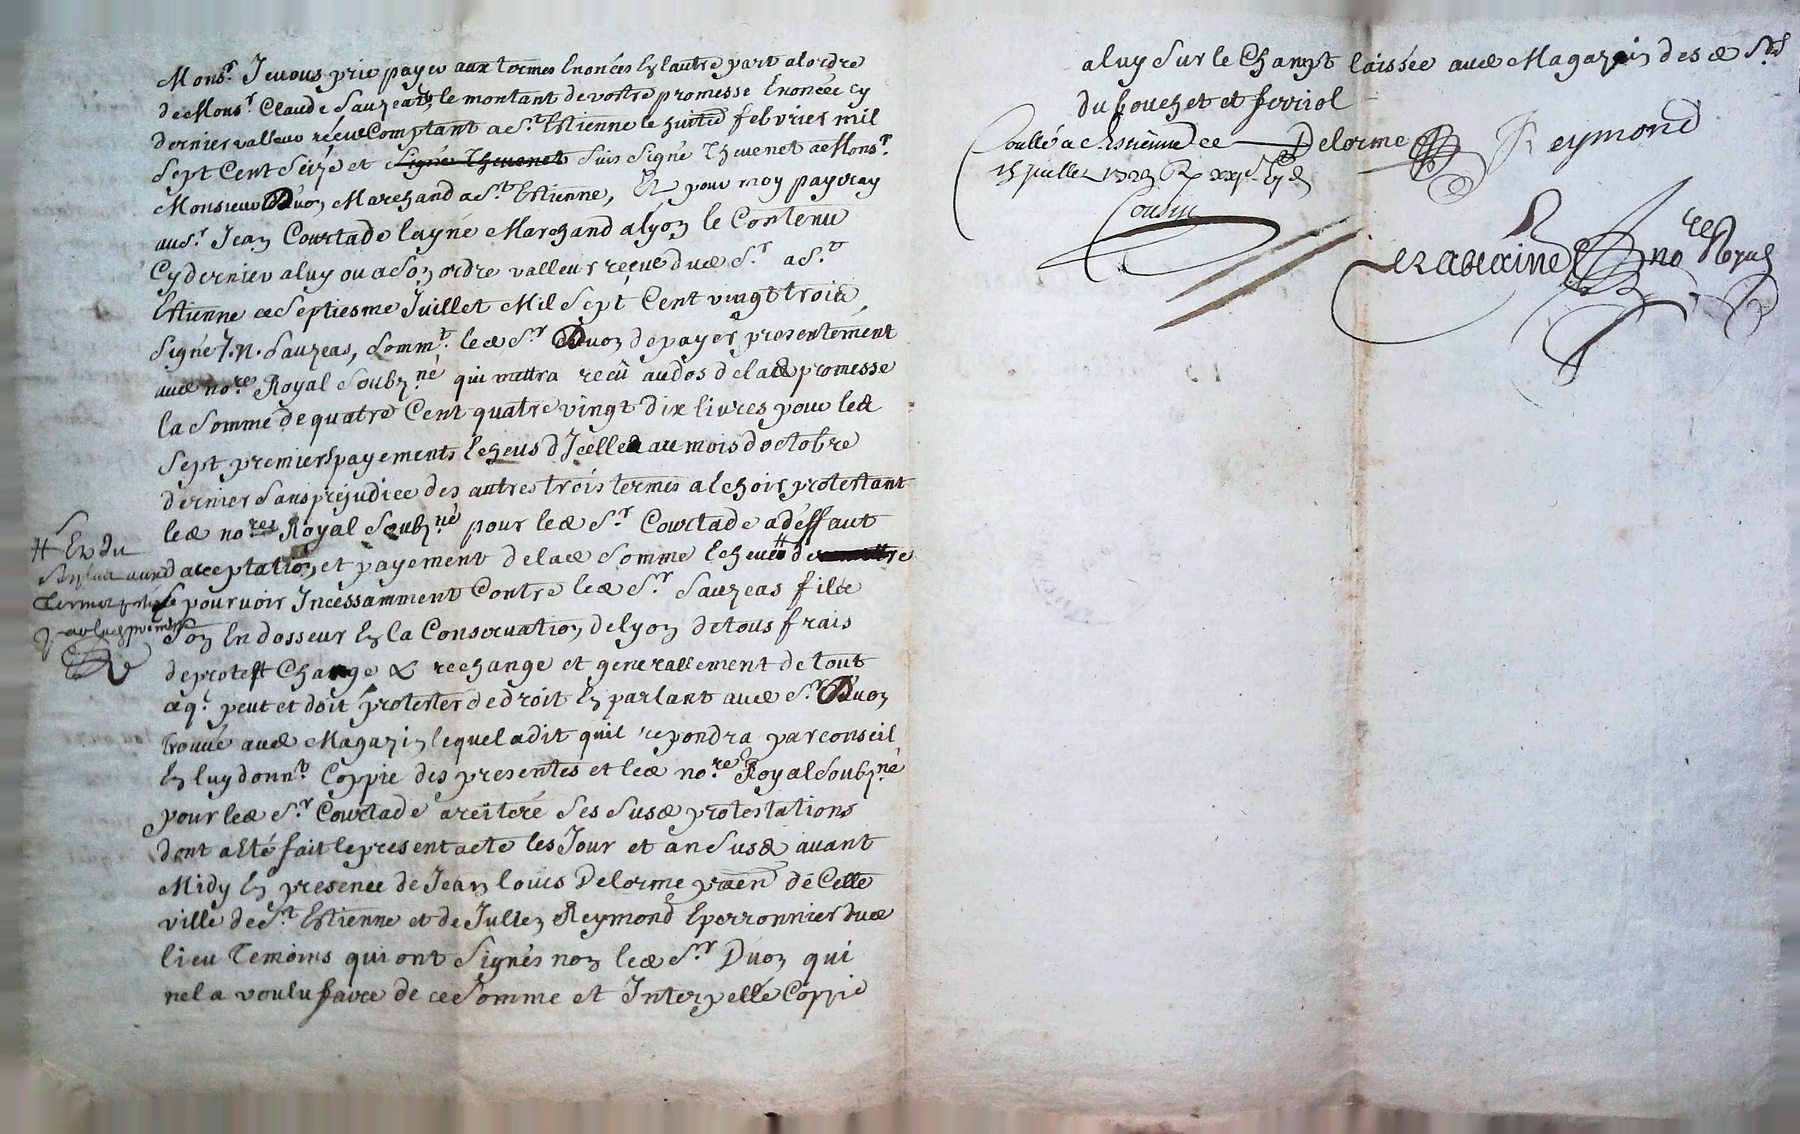 Monsr. Je vous prie payer aux termes Enoncés En lautre part alordre
de Monsr Claude Sauzeas, le montant de vostre promesse Enoncée cy
dernier valleur réçeue Comptant a St. Estienne le huitie febvrier mil
Sept Cent Seize et signé Thevenet Suis Signé Thevenet a Monsr.
Monsieur Duon Marchand a St. Estienne, Et pour moy payeray
au Sr. Jean Courtade layné Marchand alyon le Contenu
Cy dernier a luy ou a Son ordre valleur reçeue dud Sr. a St.
Estienne ce Septiesme Juillet Mil Sept Cent vingt trois
Signé J. N. Sauzeas, Sommt. led Sr Duon de payer presentement
aud nore Royal Soubzné qui mettra reçu au dos de lad promesse
la Somme de quatre Cent quatre vingt dix livres pour les
Sept premiers payements Echeus d'Icelle au mois doctobre
dernier Sans prejudice des autres trois termes a Echoir, protestant
led nore Royal Soubzné pour led Sr. Courtade a deffaut
dacceptation, et payement de lad Somme Echeue de
se pourvoir Incessamment Contre led Sr. Sauzeas fils
Son Endosseur En la Conservation de lyon de tous frais
de protest Change & rechange et generallement de tout
ce qr. peut et doit protester de droit En parlant aud Sr. Duon
trouvé aud Magazin lequel a dit quil repondra par conseil
En luy donnt. Coppie des presentes et led nore Royal Soubzné
pour led Sr Courtade a reitéré Ses Susd protestations
dont a Eté fait le present acte les Jour et an Susd avant
Midy En presence de Jean louis Delorme praen de Cette
ville de St Estienne et de Jullen Reymond Eperronnier dud
lieu Temoins qui ont Signés non led Sr Duon qui
ne la voulu faire de ce Sommé et Interpellé Coppie
# Et du
a luy Sur le Champt laissée aud Magazin desd Srs
du fouchet et ferriol
Delorme Reymond
Coullé a St Estienne ce
15 juillet 1723
Cousin
Ravarine nore Royal